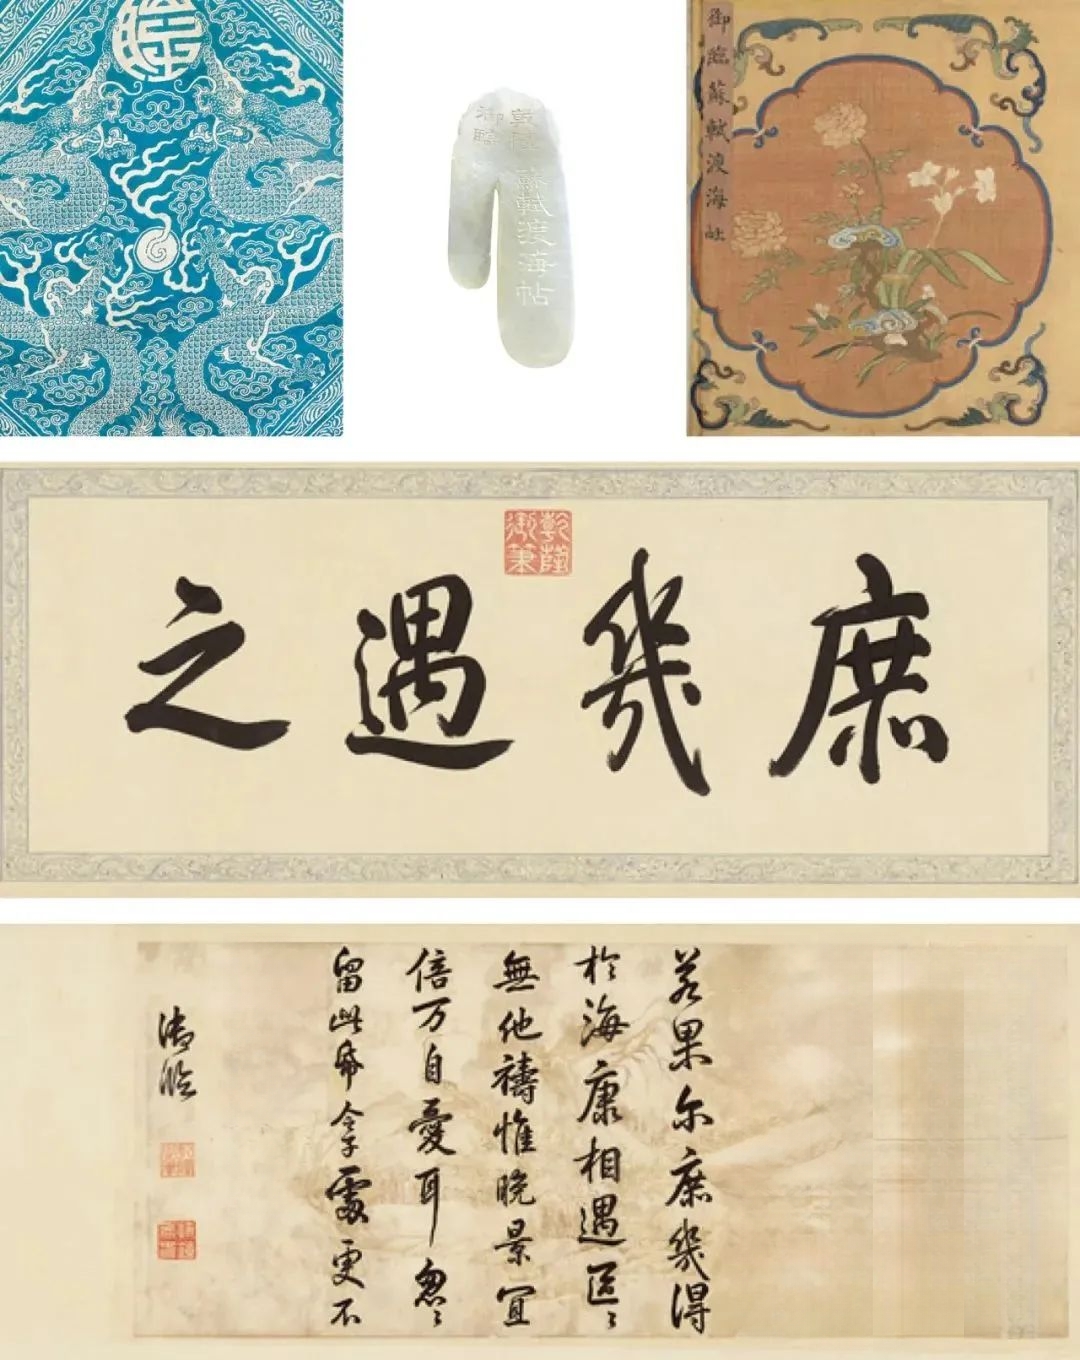 乾隆
御臨
蘇軾渡海帖
御臨蘇軾渡海帖
乾隆御筆
庶幾遇之
若果尔庶幾得
於海康相遇區〻
無他禱惟晚景宜
倍万自愛耳忽〻
留此帋令子處更不
御臨